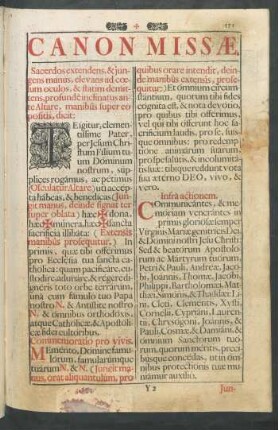 CANON MISSÆ.
Sacerdos extendens, & jun-
gens manus, elevans ad cœ-
lum oculos, & statim demit-
tens, profunde inclinatus an-
te Altare, manibus super eo
positis, dicit:
TE igitur, clemen-
tissime Pater,
per Jesum Chri-
stum Filium tu-
um Dominum
nostrum, sup-
plices rogamus, ac petimus
(Osculatur Altare) uti accep-
ta habeas, & benedicas (Jun-
git manus, deinde signat ter
super oblata) hæc ✠ dona,
hæc ✠ munera, hæc ✠ sancta
sacrificia illibata: (Extensis
manibus prosequitur.) In
primis, quæ tibi offerimus
pro Ecclesia tua sancta ca-
tholica: quam pacificare, cu-
stodire, adunare, & regere di-
gneris toto orbe terrarum,
una cum famulo tuo Papa
nostro N. & Antistite nostro
N. & omnibus orthodoxis,
atque Catholicæ & Apostoli-
cæ fidei cultoribus.
Commemoratio pro vivis.
MEmento, Domine famu-
lorum, famularumque
tuarum N. & N. (Jungit ma-
nus, orat aliquantulum, pro
quibus orare intendit, dein-
de manibus extensis, prose-
quitur:) Et omnium circum-
stantium, quorum tibi fides
cognita est, & nota devotio,
pro quibus tibi offerimus,
vel qui tibi offerunt hoc sa-
crificium laudis, pro se, suis-
que omnibus: pro redemp-
tione animarum suarum,
pro spe salutis, & incolumita-
tis suæ: tibique reddunt vota
sua æterno DEO, vivo, &
vero.
Infra actionem.
COmmunicantes, & me-
moriam venerantes in
primis gloriosæ semper
Virginis Mariæ genitricis Dei,
& Domini nostri Jesu Christi:
Sed & beatorum Apostolo-
rum ac Martyrum tuorum,
Petri & Pauli, Andreæ, Jaco-
bi, Joannis, Thomæ, Jacobi,
Philippi, Bartholomæi, Mat-
thæi, Simonis, & Thaddæi: Li-
ni, Cleti, Clementis, Xysti,
Cornelii, Cypriani, Lauren-
tii, Chrysogoni, Joannis, &
Pauli, Cosmæ, & Damiani, &
omnium Sanctorum tuo-
rum, quorum meritis, preci-
busque concedas, ut in omni-
bus protectionis tuæ mu-
niamur auxilio.
Y 2
Jun-